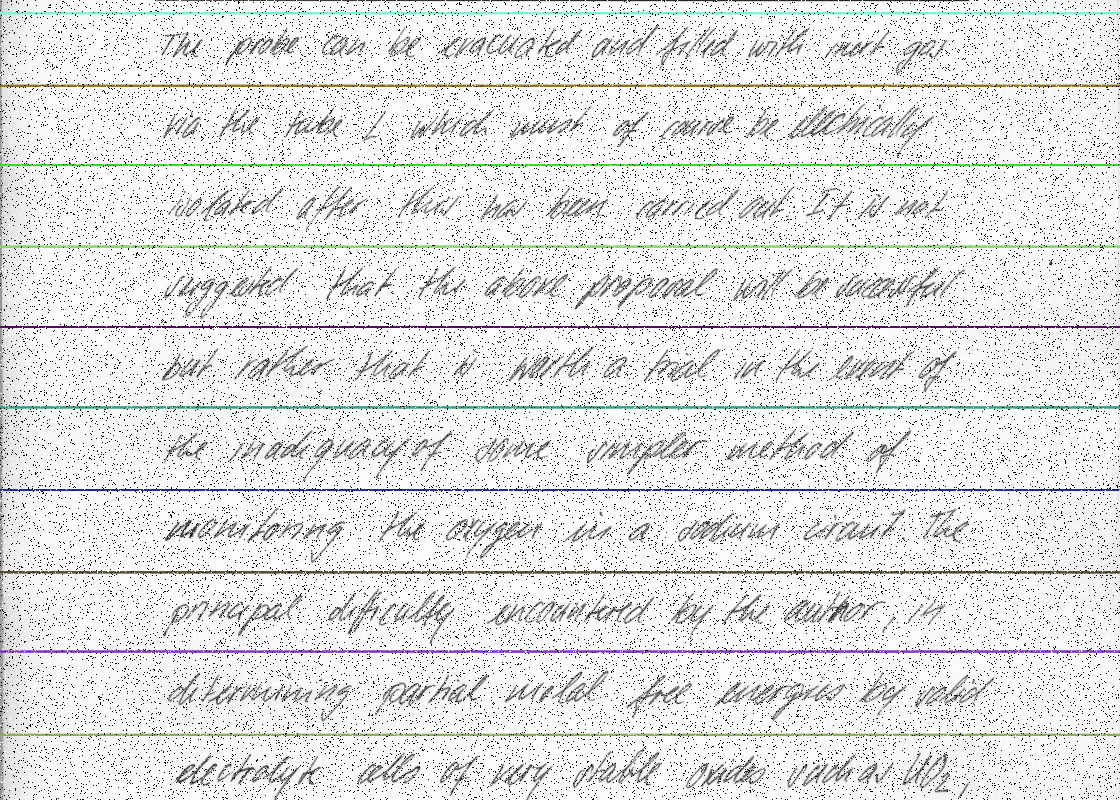 The probe can be evacuated and filled with inert gas
via the tube L which must of course be electrically
isolated after this has been carried out. It is not
suggested that the above proposal will be successful
but rather that is worth a trial in the event of
the inadiquacy of some simpler method of
monitoring the oxygen in a sodium circuit. The
principal difficulty encountered by the author, in
determining partial molal free energies by solid
electrolyte cells of very stable oxides such as UO2,